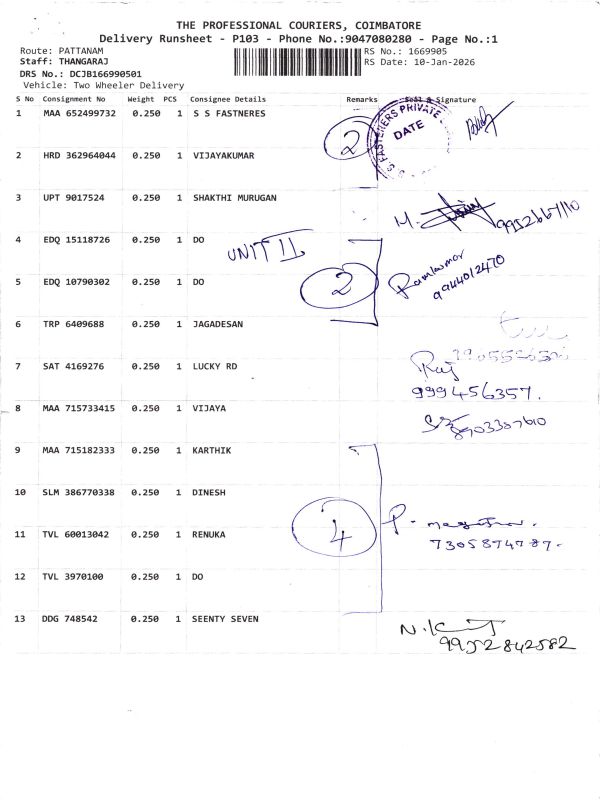 THE PROFESSIONAL COURIERS, COIMBATORE
Delivery Runsheet - P103 - Phone No.:9047080280 - Page No.:1
Route: PATTANAM RS No.: 1669905
Staff: THANGARAJ RS Date: 10-Jan-2026
DRS No.: DCJB166990501
Vehicle: Two Wheeler Delivery
S No Consignment No Weight PCS Consignee Details Remarks Seal & Signature
1 MAA 652499732 0.250 1 S S FASTNERES
FASTENERS PRIVATE
DATE
2
2 HRD 362964044 0.250 1 VIJAYAKUMAR
3 UPT 9017524 0.250 1 SHAKTHI MURUGAN
M. 9952667110
4 EDQ 15118726 0.250 1 DO
UNIT II
5 EDQ 10790302 0.250 1 DO
2
9944012470
6 TRP 6409688 0.250 1 JAGADESAN
7 SAT 4169276 0.250 1 LUCKY RD
Raj
999456357.
8 MAA 715733415 0.250 1 VIJAYA
9 MAA 715182333 0.250 1 KARTHIK
10 SLM 386770338 0.250 1 DINESH
11 TVL 60013042 0.250 1 RENUKA
4
P.
7305874787-
12 TVL 3970100 0.250 1 DO
13 DDG 748542 0.250 1 SEENTY SEVEN
N.K
9952842582